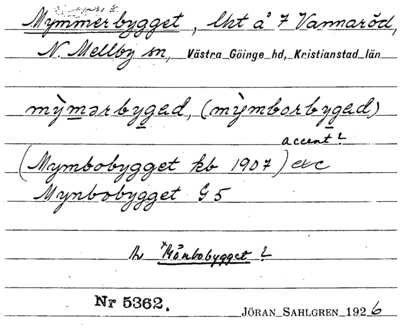 Mymmerbygget, lht å 7 Vannaröd,
N. Mellby sn, Västra Göinge hd, Kristianstad län
mỳmərbygəd, (mỳmborbygəd)
accent?
(Mymbobygget kb 1907) etc
Mynbobygget G5
*Månbobygget?
Nr 5362. JÖRAN SAHLGREN 1926